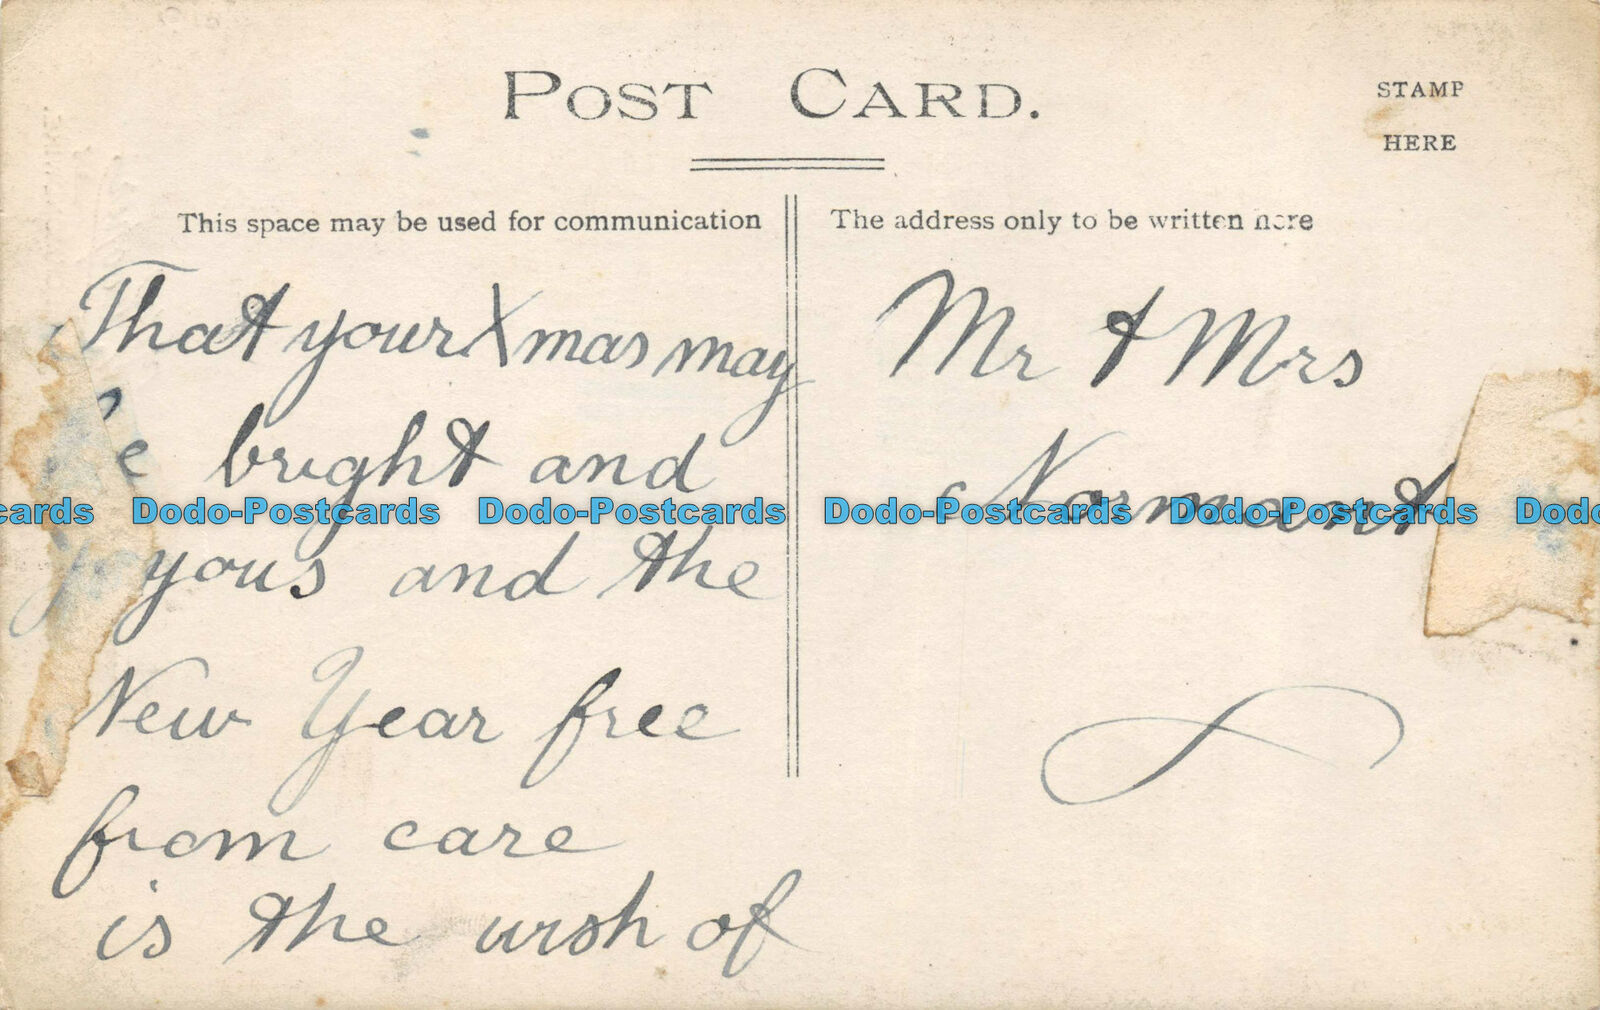 POST CARD.
STAMP
HERE
This space may be used for communication
The address only to be written here
That your Xmas may
be bright and
joyous and the
New Year free
from care
is the wish of
Mr & Mrs
Normant
cards Dodo-Postcards Dodo-Postcards Dodo-Postcards Dodo-Postcards Dodo